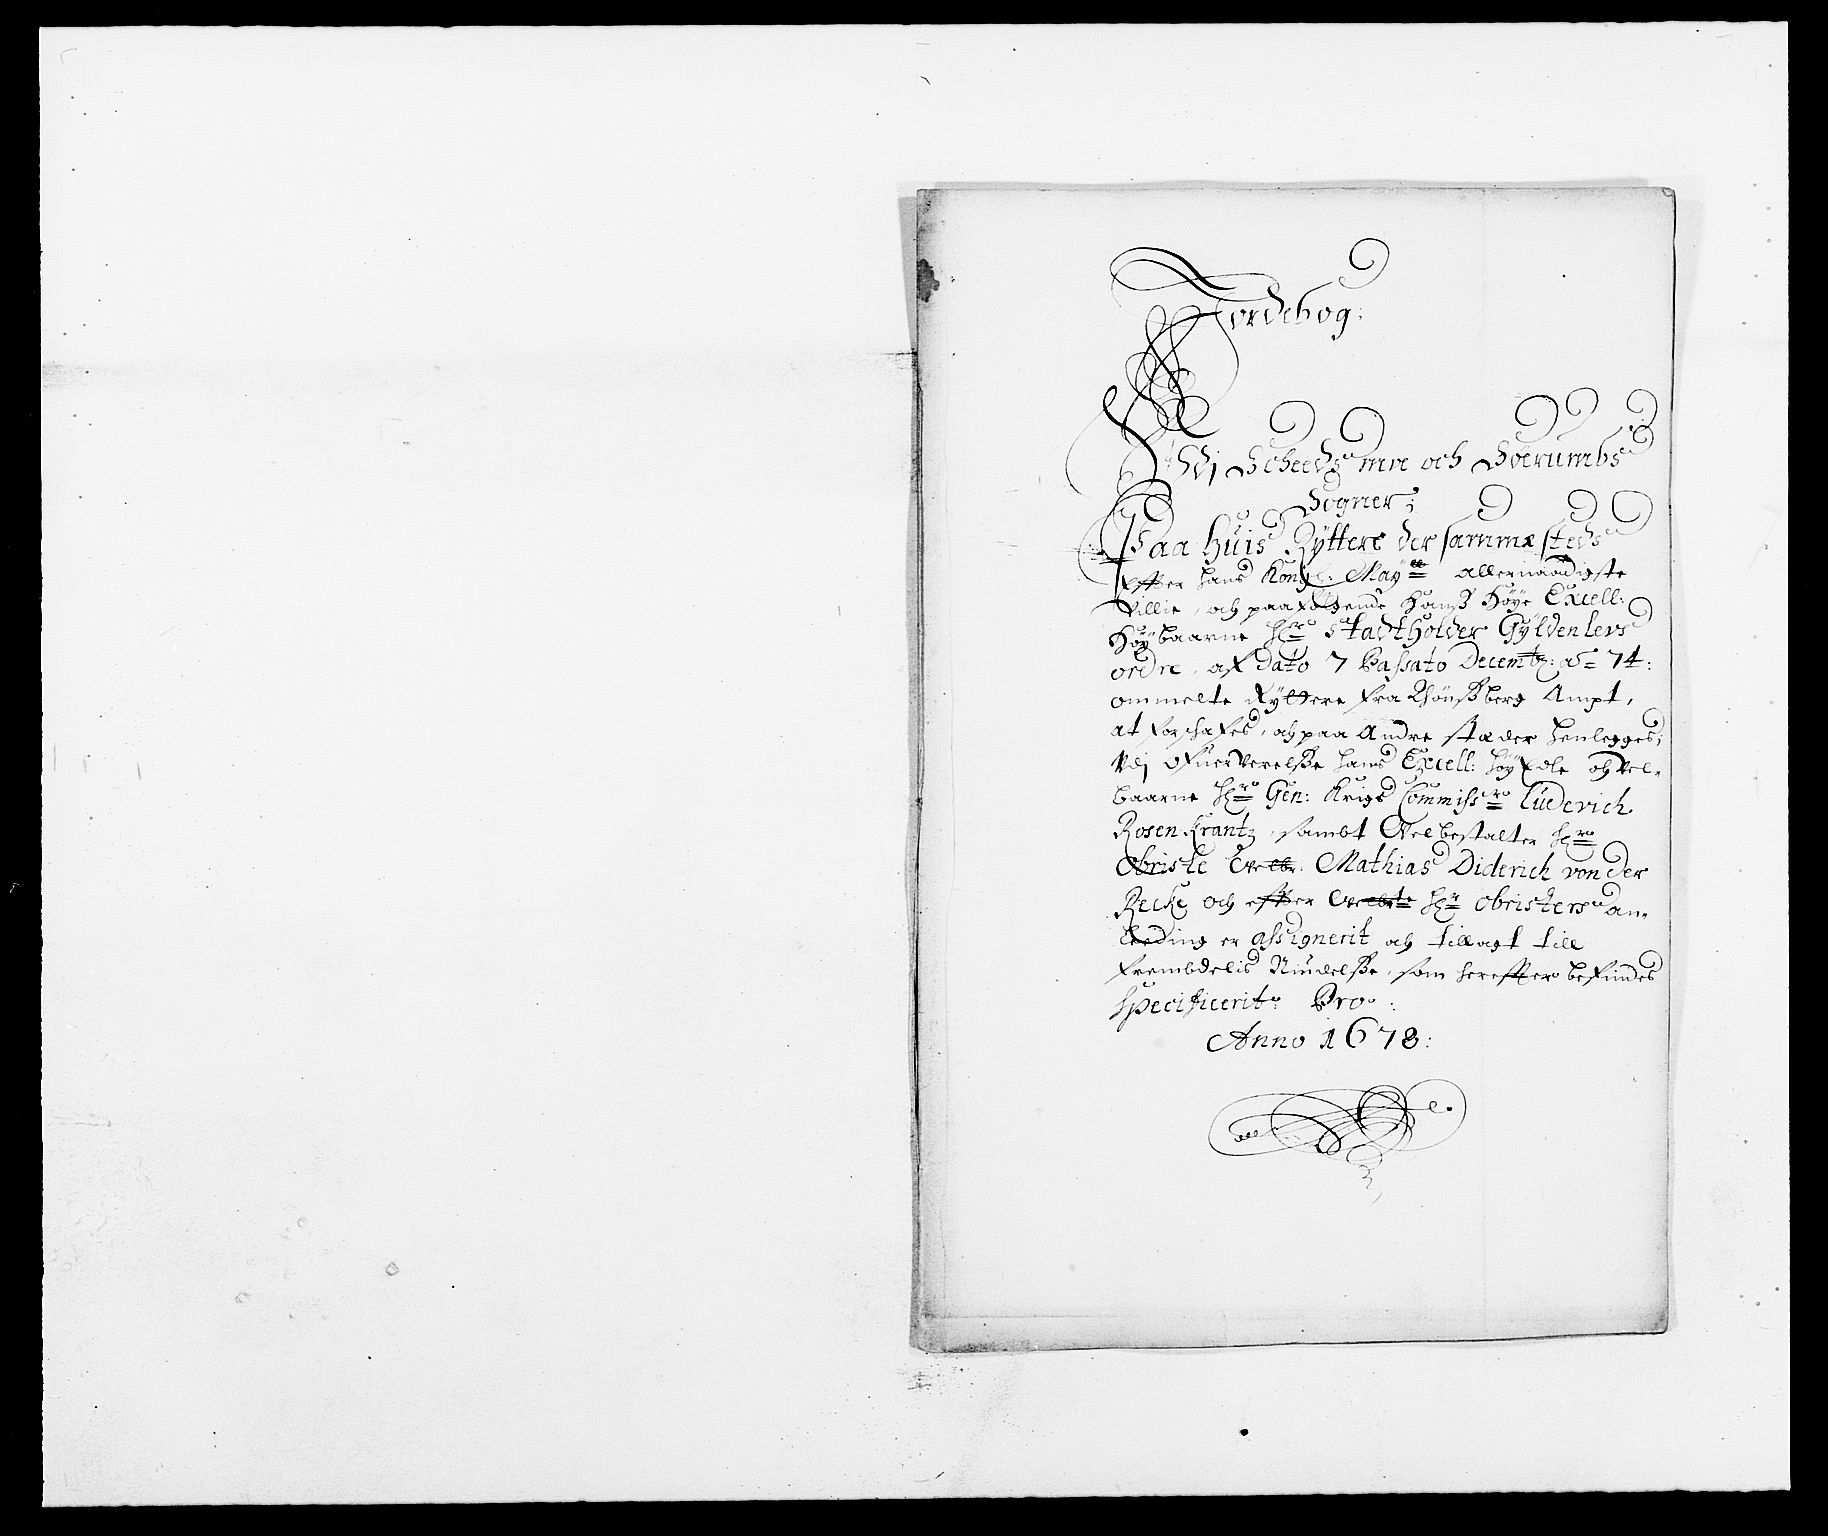 Jordebog:
Udj Scheedsmoe och Sörumbs
Sogner;
Paa huis Ryttere der sammæsteds
effter hans Kongl: Mayᵗˢ allernaadigste
Villie, och paafölgende Hanß Höye Excell:
Höybaarne Hʳ Stadtholder Gyldenlevs
ordre, af dato 7 Passato Decembr: aº 74:
ommelte Ryttere fra Thönßberg Ampt,
at forschafes, och paa Andre stæder henlegges,
Udj Ofuerverelße hans Excell: höyEdle och vel-
baarne Hʳ Gen: Krigs Commissʳ Lüderich
RosenKrantz, sambt Velbestalter Hʳ
Obriste Velbr: Mathias Diderich von der
Recke och effter Velbte Hʳ Obristers an-
leeding er assignerit och tillagt till
frembdelis Niudelße, som hereffter befindes
specificerit. Pro:
Anno 1678: